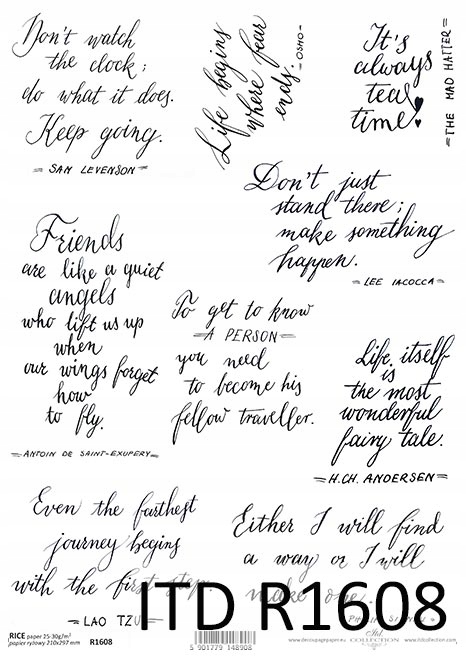 Don't watch
the clock;
do what it does.
Keep going.
= SAN LEVENSON =
Life begins
where fear
ends.
- OSHO -
It's
always
tea
time!
= THE MAD HATTER =
Don't just
stand there;
make something
happen.
= LEE IACOCCA =
Friends
are like a quiet
angels
who lift us up
when
our wings forget
how
to fly.
= ANTOIN DE SAINT-EXUPERY =
To get to know
= A PERSON =
you need
to become his
fellow traveller.
Life itself
is
the most
wonderful
fairy tale.
= H.CH. ANDERSEN =
Even the farthest
journey begins
with the first step.
= LAO TZU =
Either I will find
a way or I will
make one.
ITD R1608
RICE paper 25-30g/m²
papier ryżowy 210x297 mm R1608
5 901779 148908
www.decoupagepaper.eu
ITD
COLLECTION
www.itdcollection.com